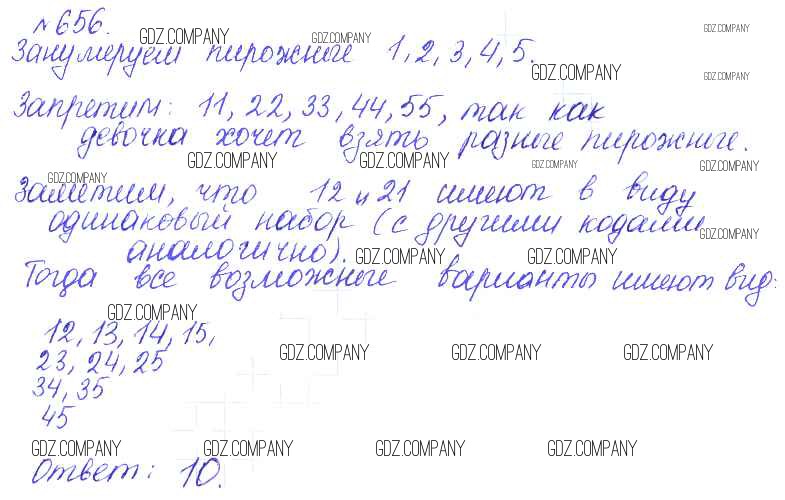 №656.
Занумеруем пирожные 1, 2, 3, 4, 5.
Запретим: 11, 22, 33, 44, 55, так как
девочка хочет взять разные пирожные.
Заметим, что 12 и 21 имеют в виду
одинаковый набор (с другими кодами
аналогично).
Тогда все возможные варианты имеют вид:
12, 13, 14, 15,
23, 24, 25
34, 35
45
Ответ: 10.
GDZ.COMPANY GDZ.COMPANY GDZ.COMPANY
GDZ.COMPANY GDZ.COMPANY
GDZ.COMPANY GDZ.COMPANY GDZ.COMPANY GDZ.COMPANY
GDZ.COMPANY
GDZ.COMPANY GDZ.COMPANY GDZ.COMPANY
GDZ.COMPANY
GDZ.COMPANY GDZ.COMPANY GDZ.COMPANY
GDZ.COMPANY GDZ.COMPANY GDZ.COMPANY GDZ.COMPANY